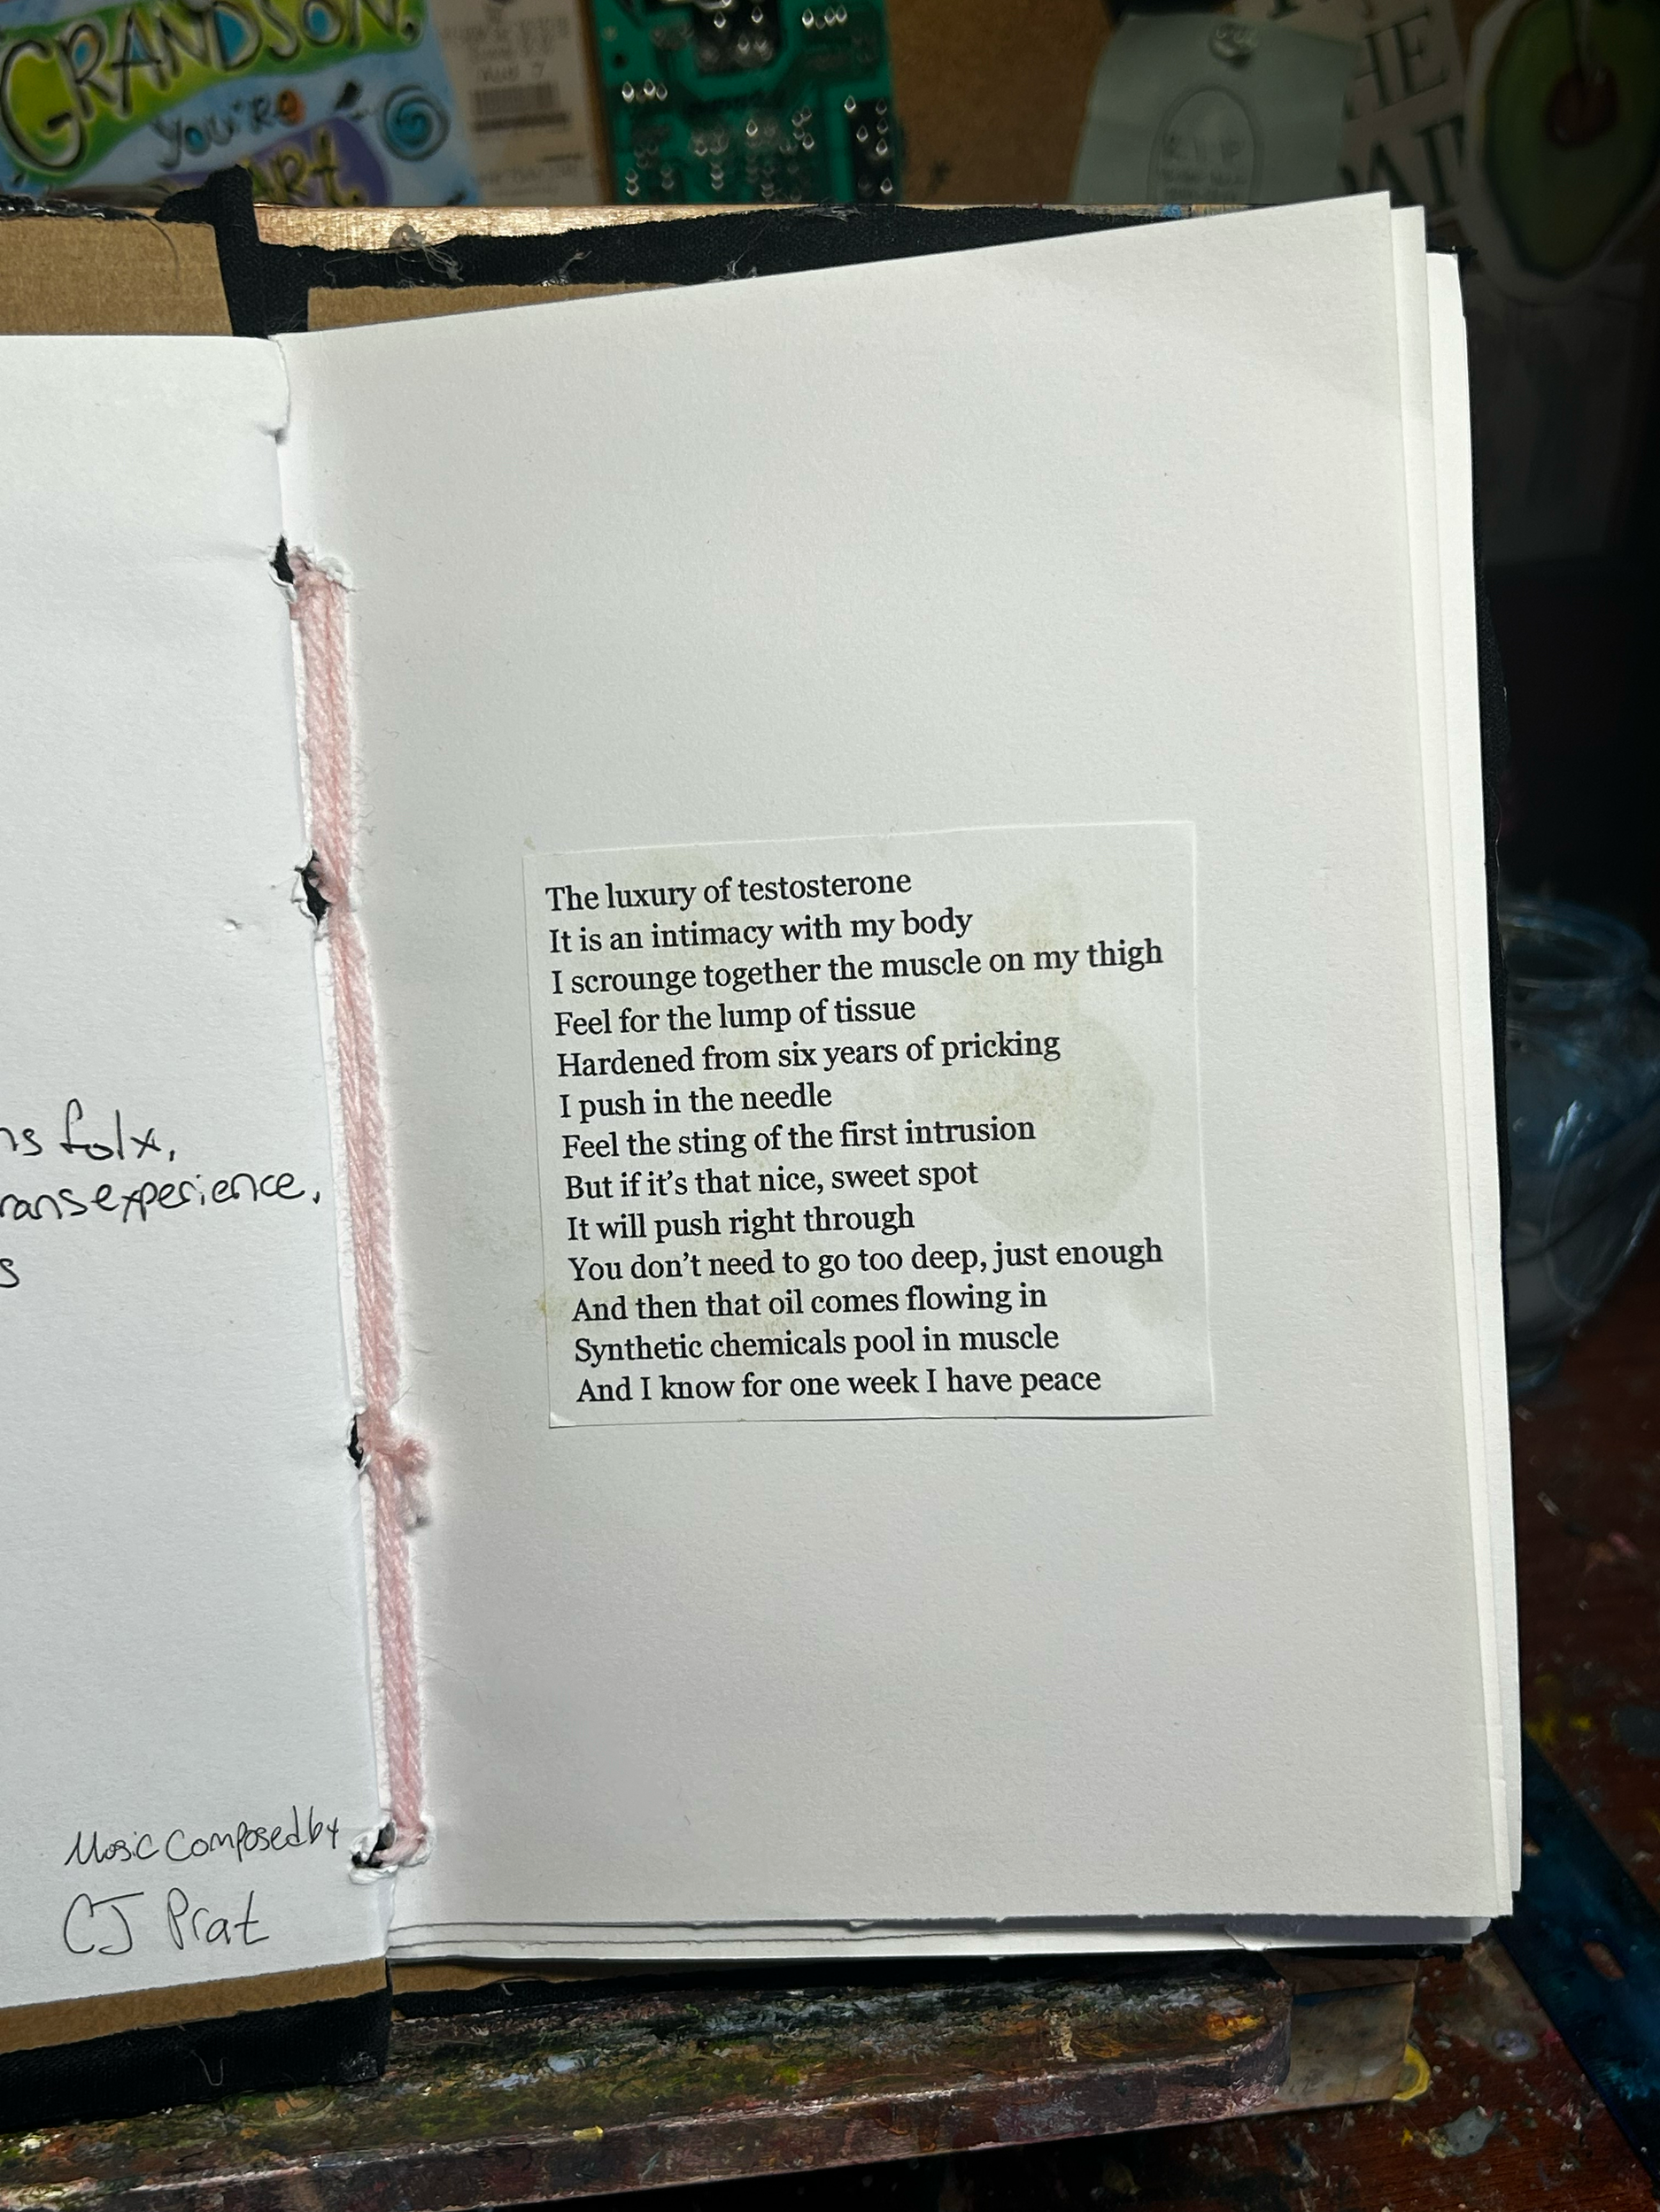 GRANDSON,
you're
ART.
THE
folx,
experience,
s
Music Composed by
CJ Prat
The luxury of testosterone
It is an intimacy with my body
I scrounge together the muscle on my thigh
Feel for the lump of tissue
Hardened from six years of pricking
I push in the needle
Feel the sting of the first intrusion
But if it's that nice, sweet spot
It will push right through
You don't need to go too deep, just enough
And then that oil comes flowing in
Synthetic chemicals pool in muscle
And I know for one week I have peace